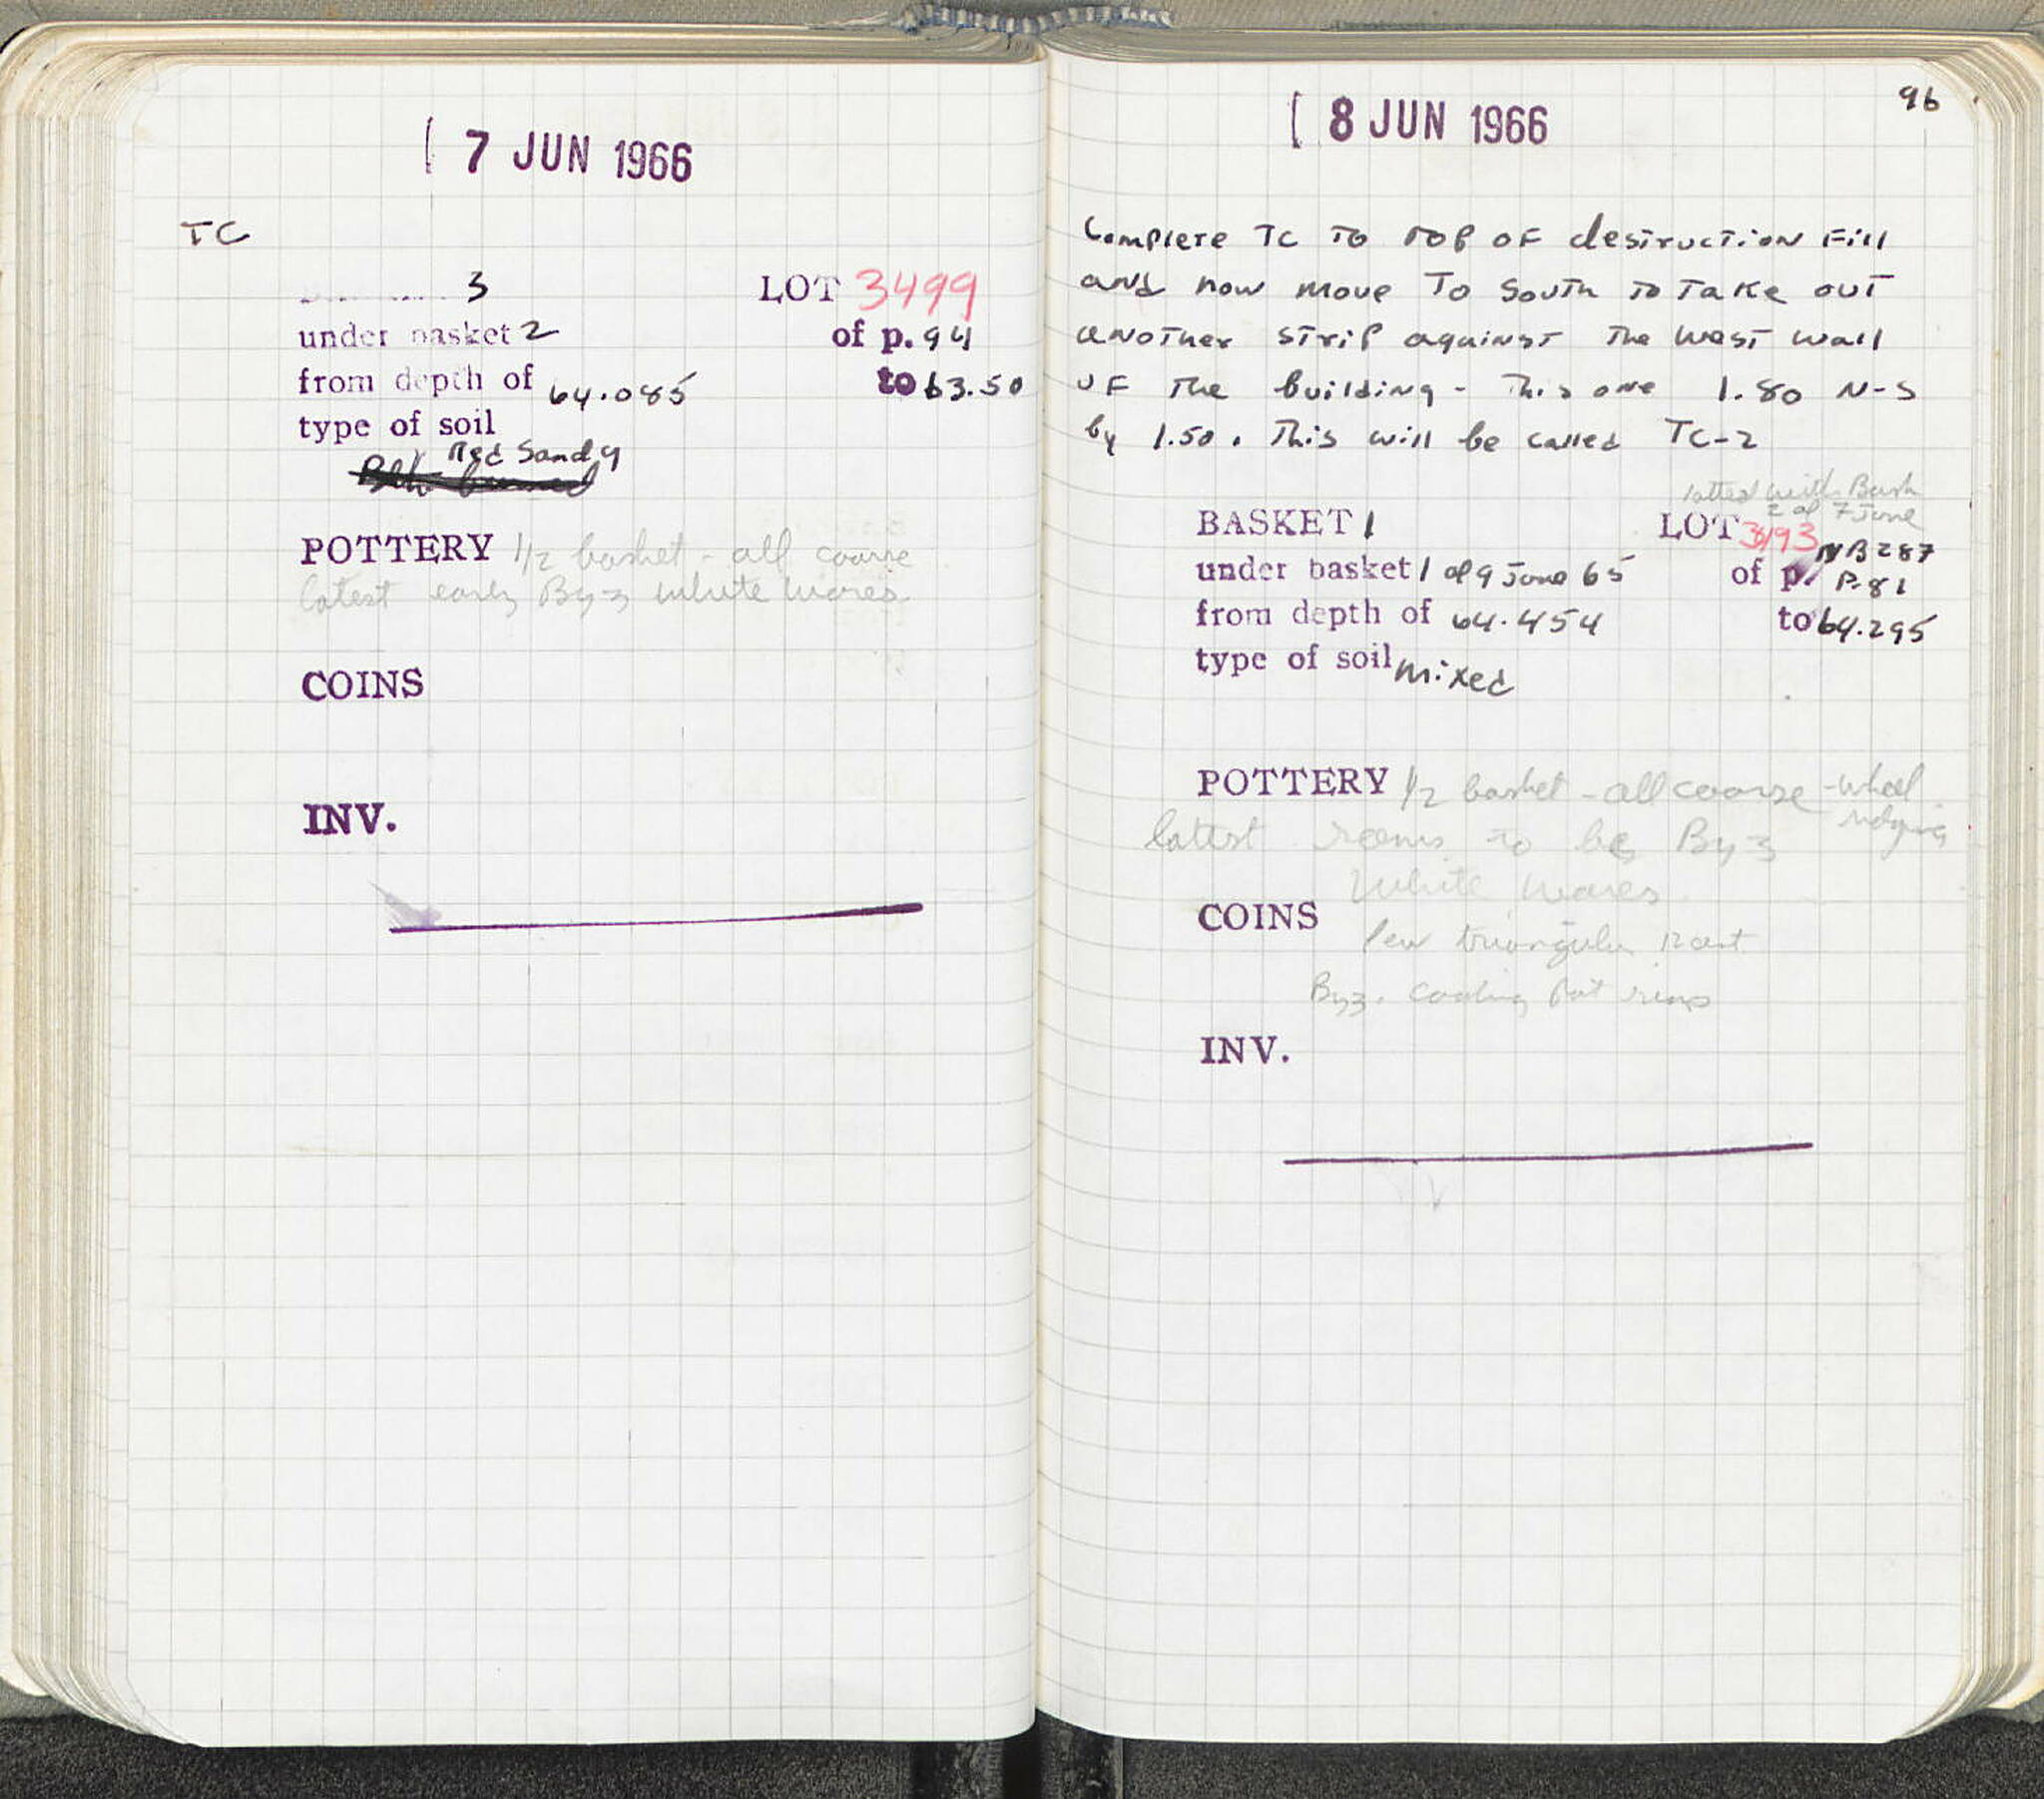 7 JUN 1966
TC
3 LOT 3499
under basket 2 of p. 94
from depth of 64.085 to 63.50
type of soil
Red Sandy
POTTERY 1/2 basket - all coarse
latest early Byz white wares.
COINS
INV.
96
8 JUN 1966
Complete TC to top of destruction fill
and now move to south to take out
another strip against the west wall
of the building - This one 1.80 N-S
by 1.50. This will be called TC-2
lotted with Bask
2 of 7 June
BASKET 1 LOT 3493
under basket 1 of 9 June 65 of p. NB 287 P. 81
from depth of 64.454 to 64.295
type of soil mixed
POTTERY 1/2 basket - all coarse - wheel
ridging
latest seems to be Byz
White wares
COINS
few triangular
Byz. cooking pot rims
INV.